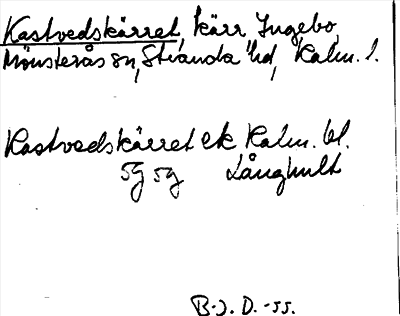 Kastvedskärret, kärr, Ingebo,
Mönsterås sn, Stranda hd, Kalm. l.
Kastvedskärret ek Kalm. bl.
5g 5g Långhult
B.J.D. -55.